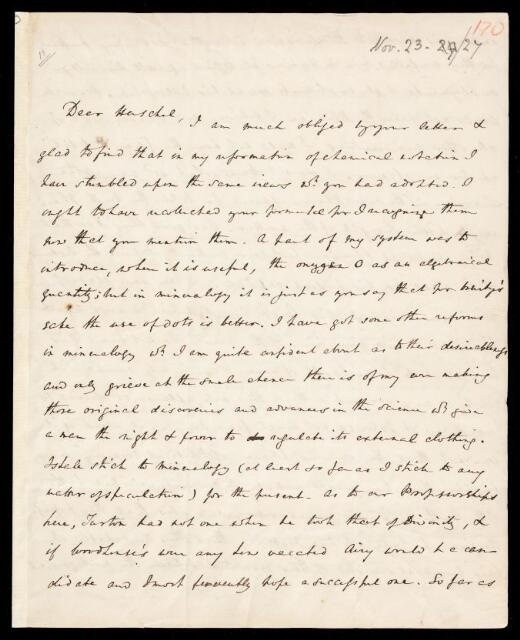 170
Nov. 23 - 27
Dear Herschel,
I am much obliged by your letter &
glad to find that in my reformation of chemical notation I
have stumbled upon the same views wh. you had adopted. I
ought to have recollected your formulae for I recognize them
now that you mention them. A part of my system was to
introduce, when it is useful, the oxygen O as an algebraical
quantity; but in mineralogy it is just as you say that for brevity's
sake the use of dots is better. I have got some other reforms
in mineralogy wh. I am quite confident about as to their desirableness
and only grieve at the small chance there is of my ever making
those original discoveries and advances in the science wh. give
a man the right & power to regulate its external clothing.
I shall stick to mineralogy (at least so far as I stick to any
matter of speculation) for the present. As to our Professorships
here, Turton had not one when he took that of Divinity, &
if Woodhouse's were any how vacated Airy would be can-
didate and I most fervently hope a successful one. So far as